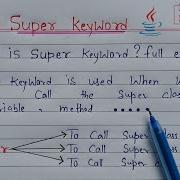 Super Keyword
is Super Keyword? full e
Keyword is used When W
Call the Super class
iable, method ......
To Call Super class
To Call Super
To Call Super c